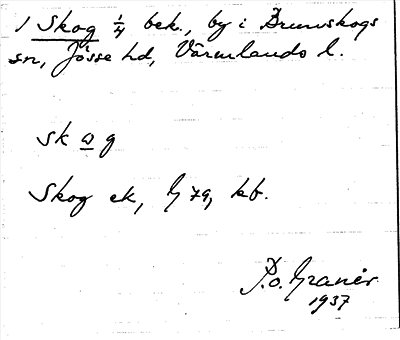 1 Skog 1/4 bek., by i Brunskogs
sn, Jösse hd, Värmlands l.
sk a g
Skog ek, G 79, kb.
P.o. Granér
1937